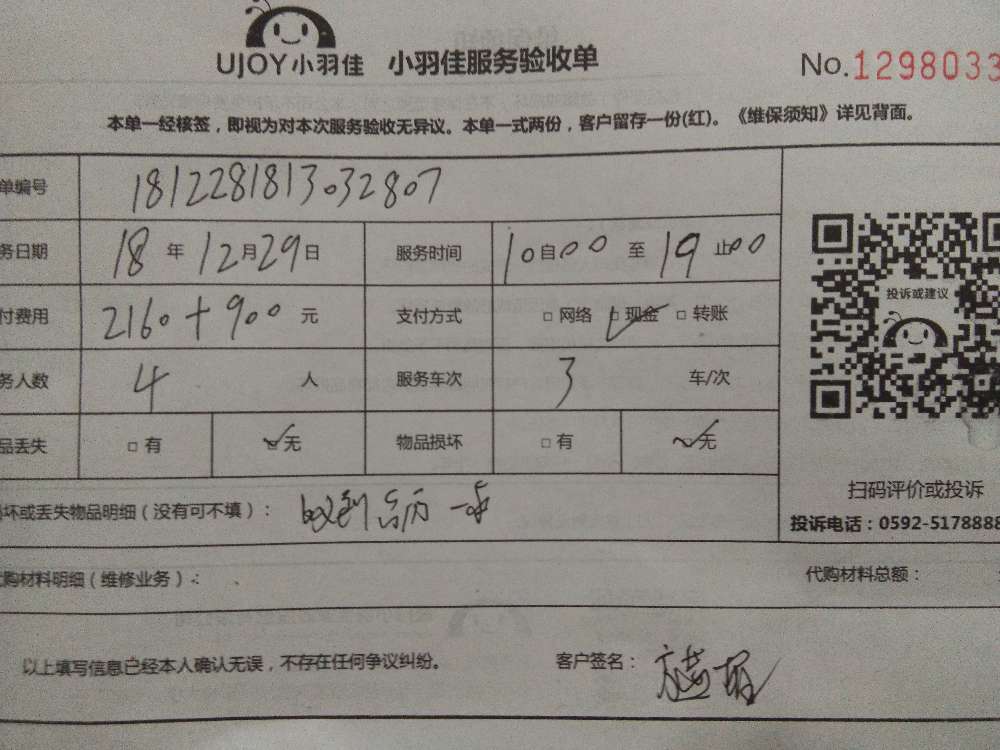 UJOY小羽佳 小羽佳服务验收单 No.1298033
本单一经核签，即视为对本次服务验收无异议。本单一式两份，客户留存一份(红)。《维保须知》详见背面。
单编号 1812281813032807
务日期 18年12月29日 服务时间 10自00至19止00
付费用 2160+900元 支付方式 □网络 □现金 □转账
务人数 4人 服务车次 3车/次
品丢失 □有 □无 物品损坏 □有 无
投诉或建议
扫码评价或投诉
投诉电话：0592-5178888
损坏或丢失物品明细（没有可不填）： 收到 一
代购材料明细（维修业务）： 代购材料总额：
以上填写信息已经本人确认无误，不存在任何争议纠纷。 客户签名：